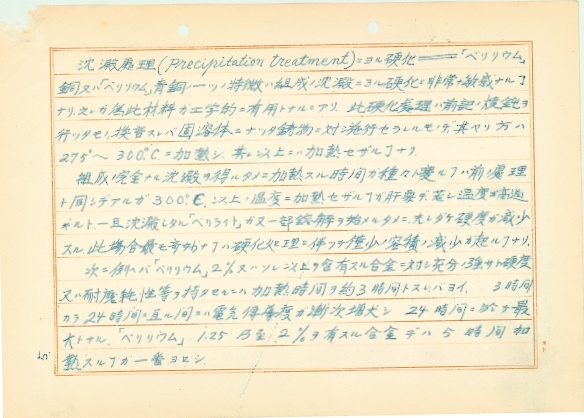 沈澱處理(Precipitation treatment)ニヨル硬化 ── 「ベリリウム」
銅又ハ「ベリリウム」青銅ノ一ツノ特徴ハ組成ノ沈澱ニヨル硬化ニ非常ニ敏感ナルヿ
ナリ. 之レガ為此材料ガ工学的ニ有用トナルニアリ. 此硬化處理ハ前記ノ焼鈍ヲ
行ッタモノ, 換言スレバ固溶体ニナッタ鋳物ニ対シ施行セラレルモノデ其ヤリ方ハ
275°〜300°Cニ加熱シ. 其レ以上ニハ加熱セザルヿナリ.
組成ノ完全ナル沈澱ヲ得ルタメニ加熱スル時間ガ種々ト異ルヿハ前ノ處理
ト同シデアルガ300°C.以上ノ温度ニ加熱セザルヿガ肝要デ若シ温度ガ高過
ギルト. 一旦沈澱シタル「ベリライト」ガ又一部鎔解ヲ始メルタメニ. ソレダケ硬度ガ減少
スル. 此場合最モ奇妙ナヿハ硬化処理ニ伴ッテ僅少ノ容積ノ減少ガ起ルヿナリ.
次ニ例ヘバ「ベリリウム」2%又ハソレ以上ヲ含有スル合金ニ対シ充分ノ強サト硬度
又ハ耐磨耗性等ヲ持タセルニハ加熱時間ヲ約3時間トスレバヨイ. 3時間
カラ24時間ニ至ル間ニハ電気伝導度ガ漸次増大シ 24時間ニ於テ最
大トナル. 「ベリリウム」1.25乃至2%ヲ有スル合金デハ5時間加
熱スルヿガ一番ヨロシ.